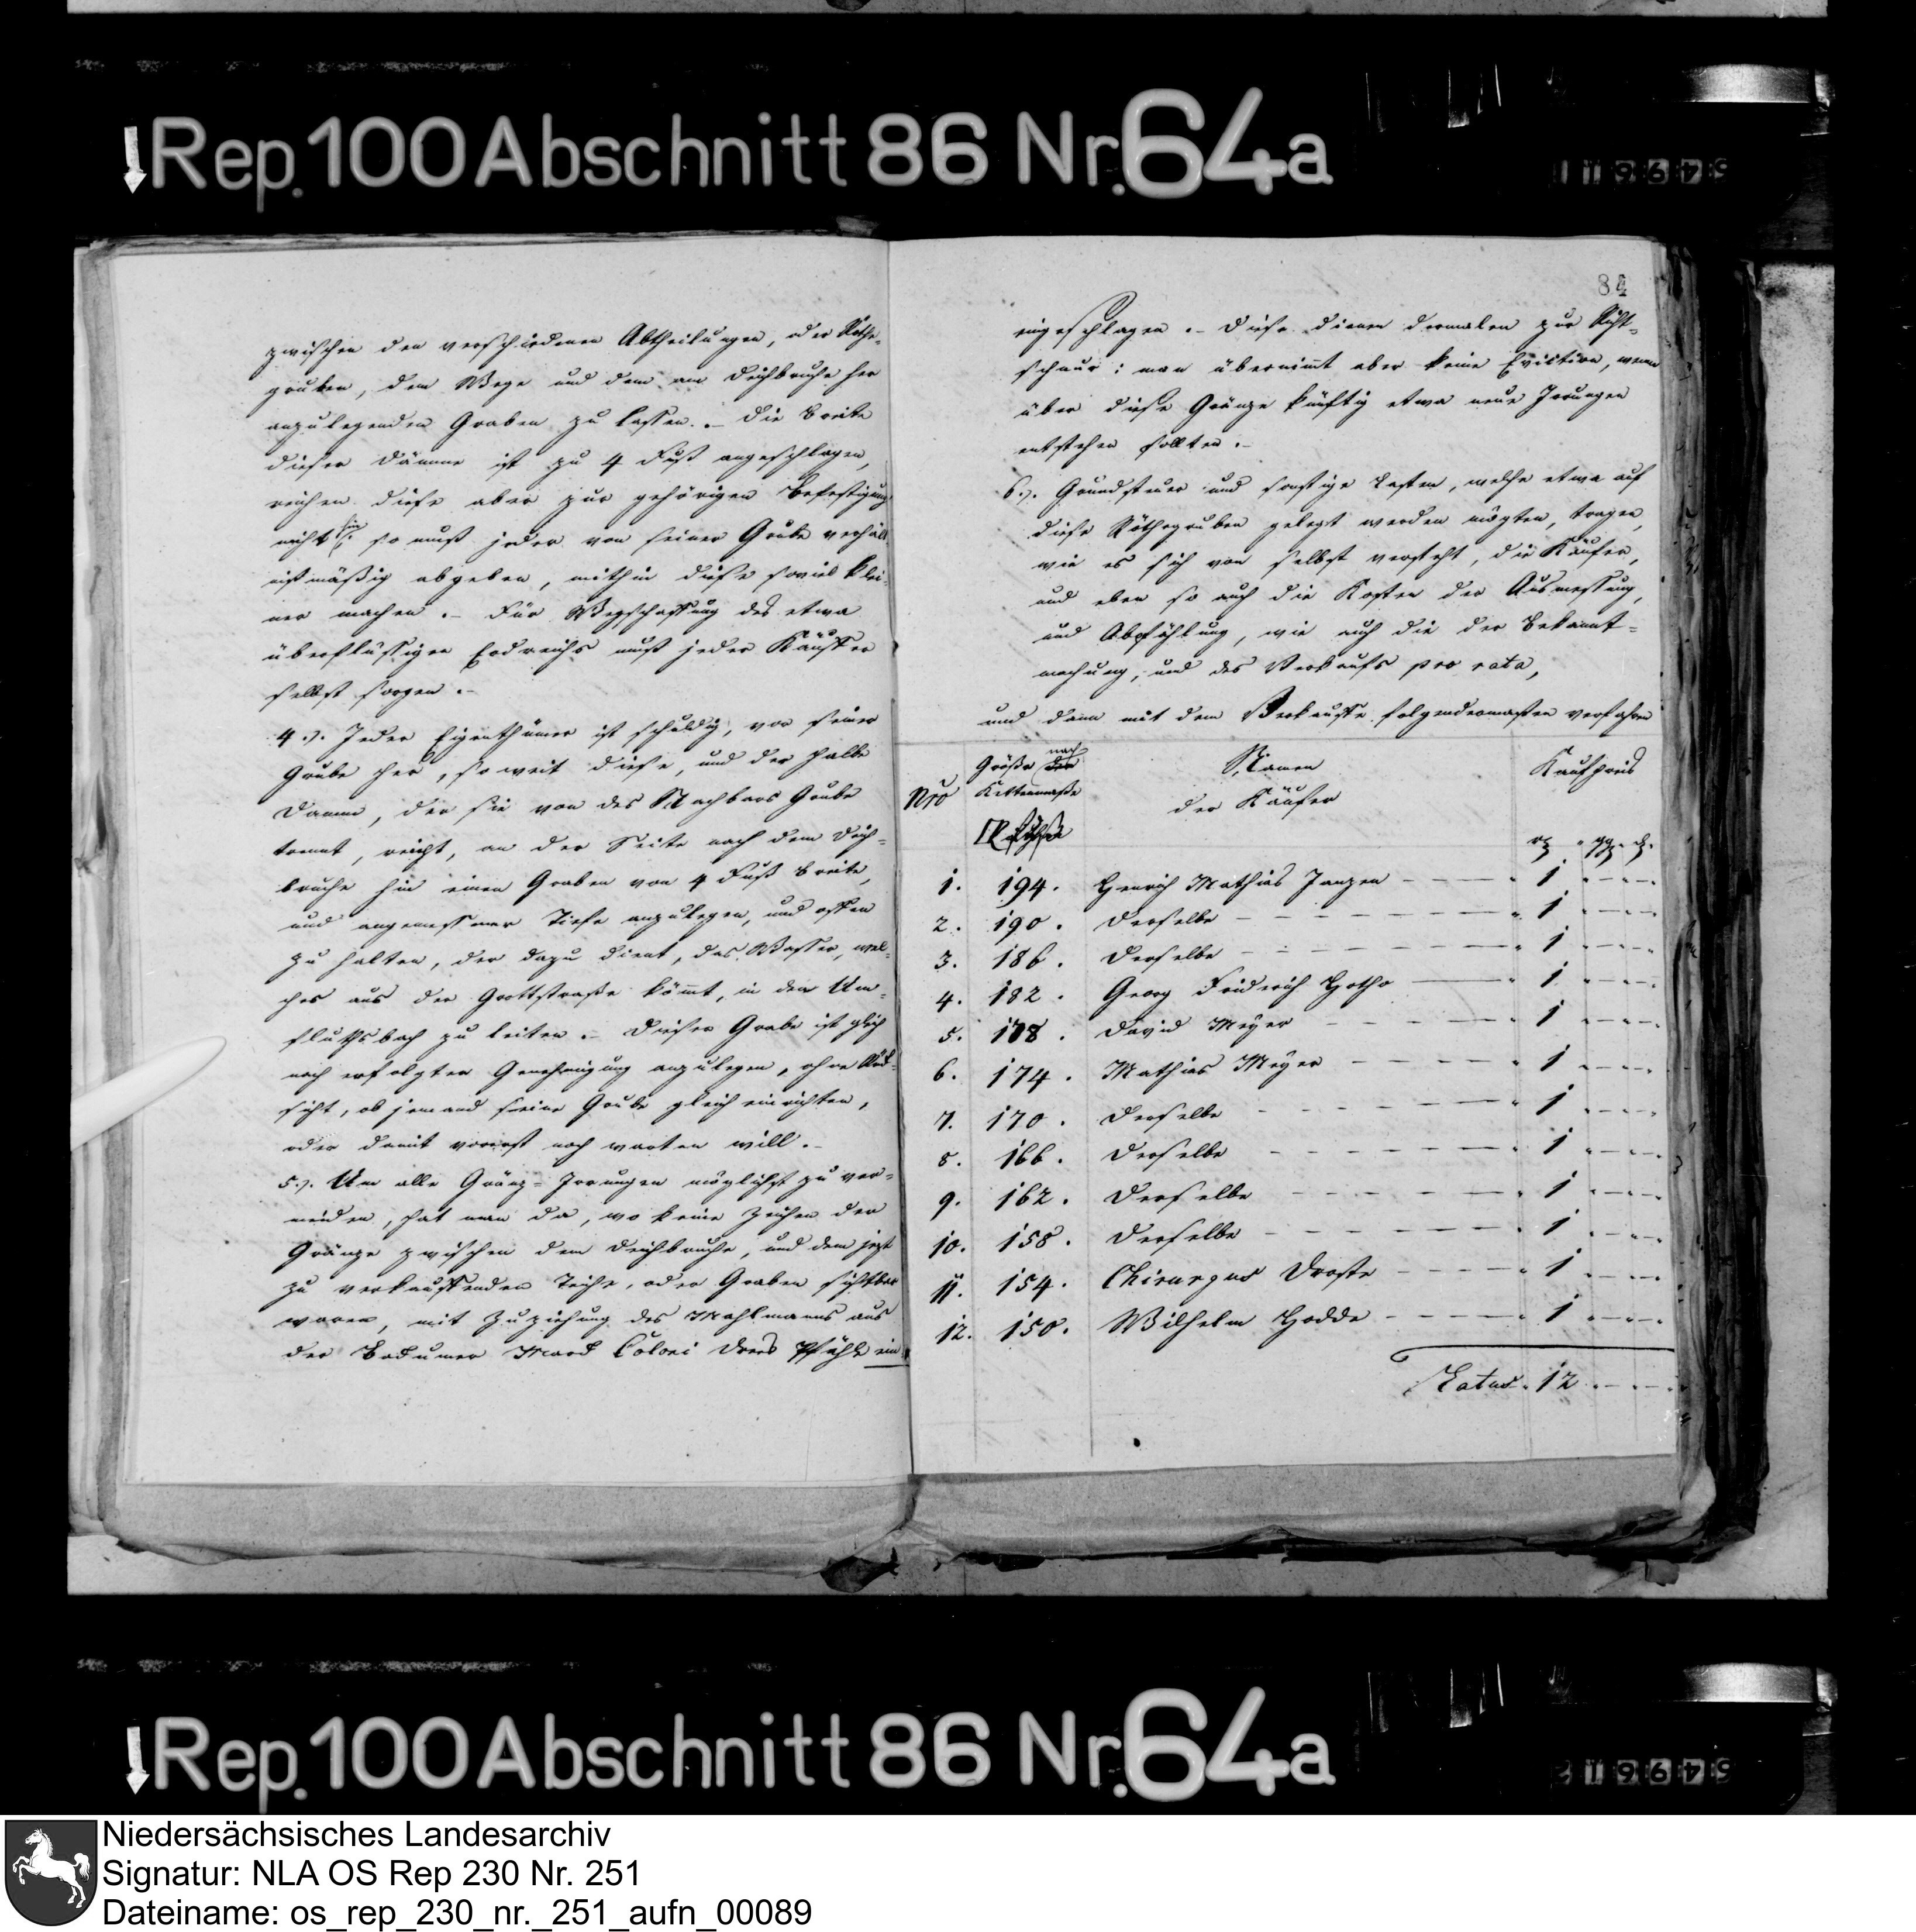 Rep. 100 Abschnitt 86 Nr. 64a
zwischen den verschiedenen Abtheilungen, oder Röthe-
gruben, dem Wege und dem am Deichbruche her
anzulegenden Graben zu lassen. – Die Breite
dieser Dämme ist zu 4 Fuß angeschlagen,
reichen diese aber zur gehörigen Befestigung
nicht hin; so muß jeder von seiner Grube verhält-
nißmäßig abgeben, mithin diese soviel klei-
ner machen. – Für Wegschaffung des etwa
überflüssigen Erdreichs muß jeder Käuffer
selbst sorgen. –
4.). Jeder Eigenthümer ist schuldig, vor seiner
Grube her, so weit diese, und der halbe
Damm, der sie von des Nachbars Grube
trennt, reicht, an der Seite nach dem Deich-
bruche hin einen Graben von 4 Fuß Breite,
und angemessener Tiefe anzulegen, und offen
zu halten, der dazu dient, das Wasser, wel-
ches aus der Grottstraße kömt, in den Um-
fluthsbach zu leiten. – Dieser Grabe ist gleich
nach erfolgter Genehmigung anzulegen, ohne Rück-
sicht, ob jemand seine Grube gleich einrichten,
oder damit vorerst noch warten will. –
5.). Um alle Gränz-Irrungen möglichst zu ver-
meiden, hat man da, wo keine Zeichen der
Gränze zwischen dem Deichbruche, und dem jezt
zu verkauffenden Teiche, oder Graben sichtbar
waren, mit Zuziehung des Mahlmanns aus
der Badumer Mark Coloni Drees Pfähle ein
84
eingeschlagen. – Diese dienen dermalen zur Richt-
schnur; man übernimt aber keine Eviction, wenn
über diese Gränze künftig etwa neue Irrungen
entstehen sollten. –
6.). Grundsteuer und sonstige Lasten, welche etwa auf
diese Röthegruben gelegt werden mögten, tragen,
wie es sich von selbst versteht, die Käufer,
und eben so auch die Kosten der Ausmessung,
und Abpfählung, wie auch die der Bekannt-
machung, und des Verkaufs pro rata,
und dann mit dem Verkauffe folgendermaßen verfahren
Nro Größe nach der Kettenmaße Namen der Käufer Kaufpreis
1. 194. Henrich Mathias Janzen – 1
2. 190. Derselbe – 1
3. 186. Derselbe – 1
4. 182. Georg Friderich Hotho – 1
5. 178. David Meyer – 1
6. 174. Mathias Meyer – 1
7. 170. Derselbe – 1
8. 166. Derselbe – 1
9. 162. Derselbe – 1
10. 158. Derselbe – 1
11. 154. Chirurgus Droste – 1
12. 150. Wilhelm Hodde – 1
Latus. 12
Rep. 100 Abschnitt 86 Nr. 64a
Niedersächsisches Landesarchiv
Signatur: NLA OS Rep 230 Nr. 251
Dateiname: os_rep_230_nr._251_aufn_00089